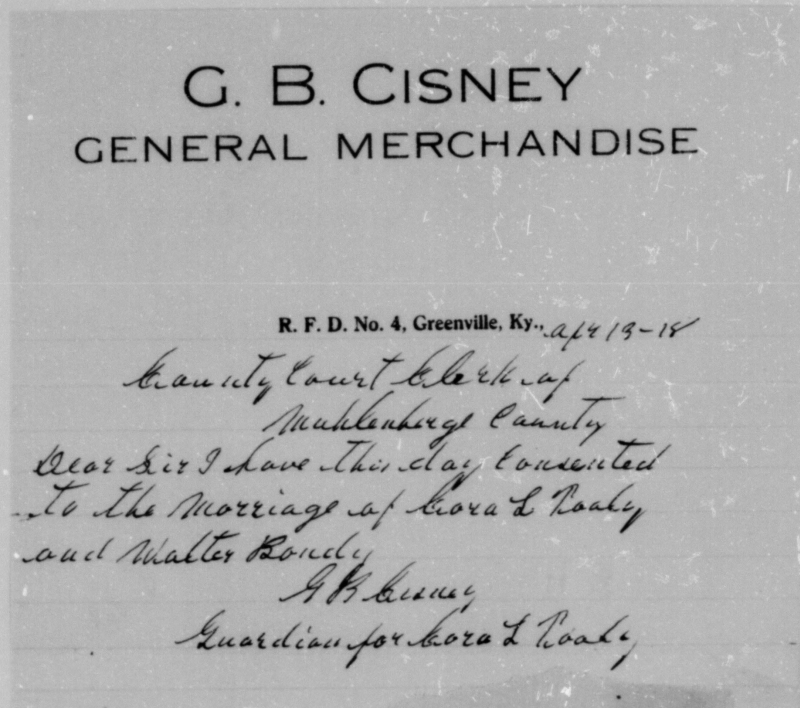 G. B. CISNEY
GENERAL MERCHANDISE
R. F. D. No. 4, Greenville, Ky., Apr 13-18
County Court Clerk of
Muhlenberge County
Dear Sir I have this day Consented
to the Marriage of Cora L
and Walter Bondy
G B Cisney
Guardian for Cora L